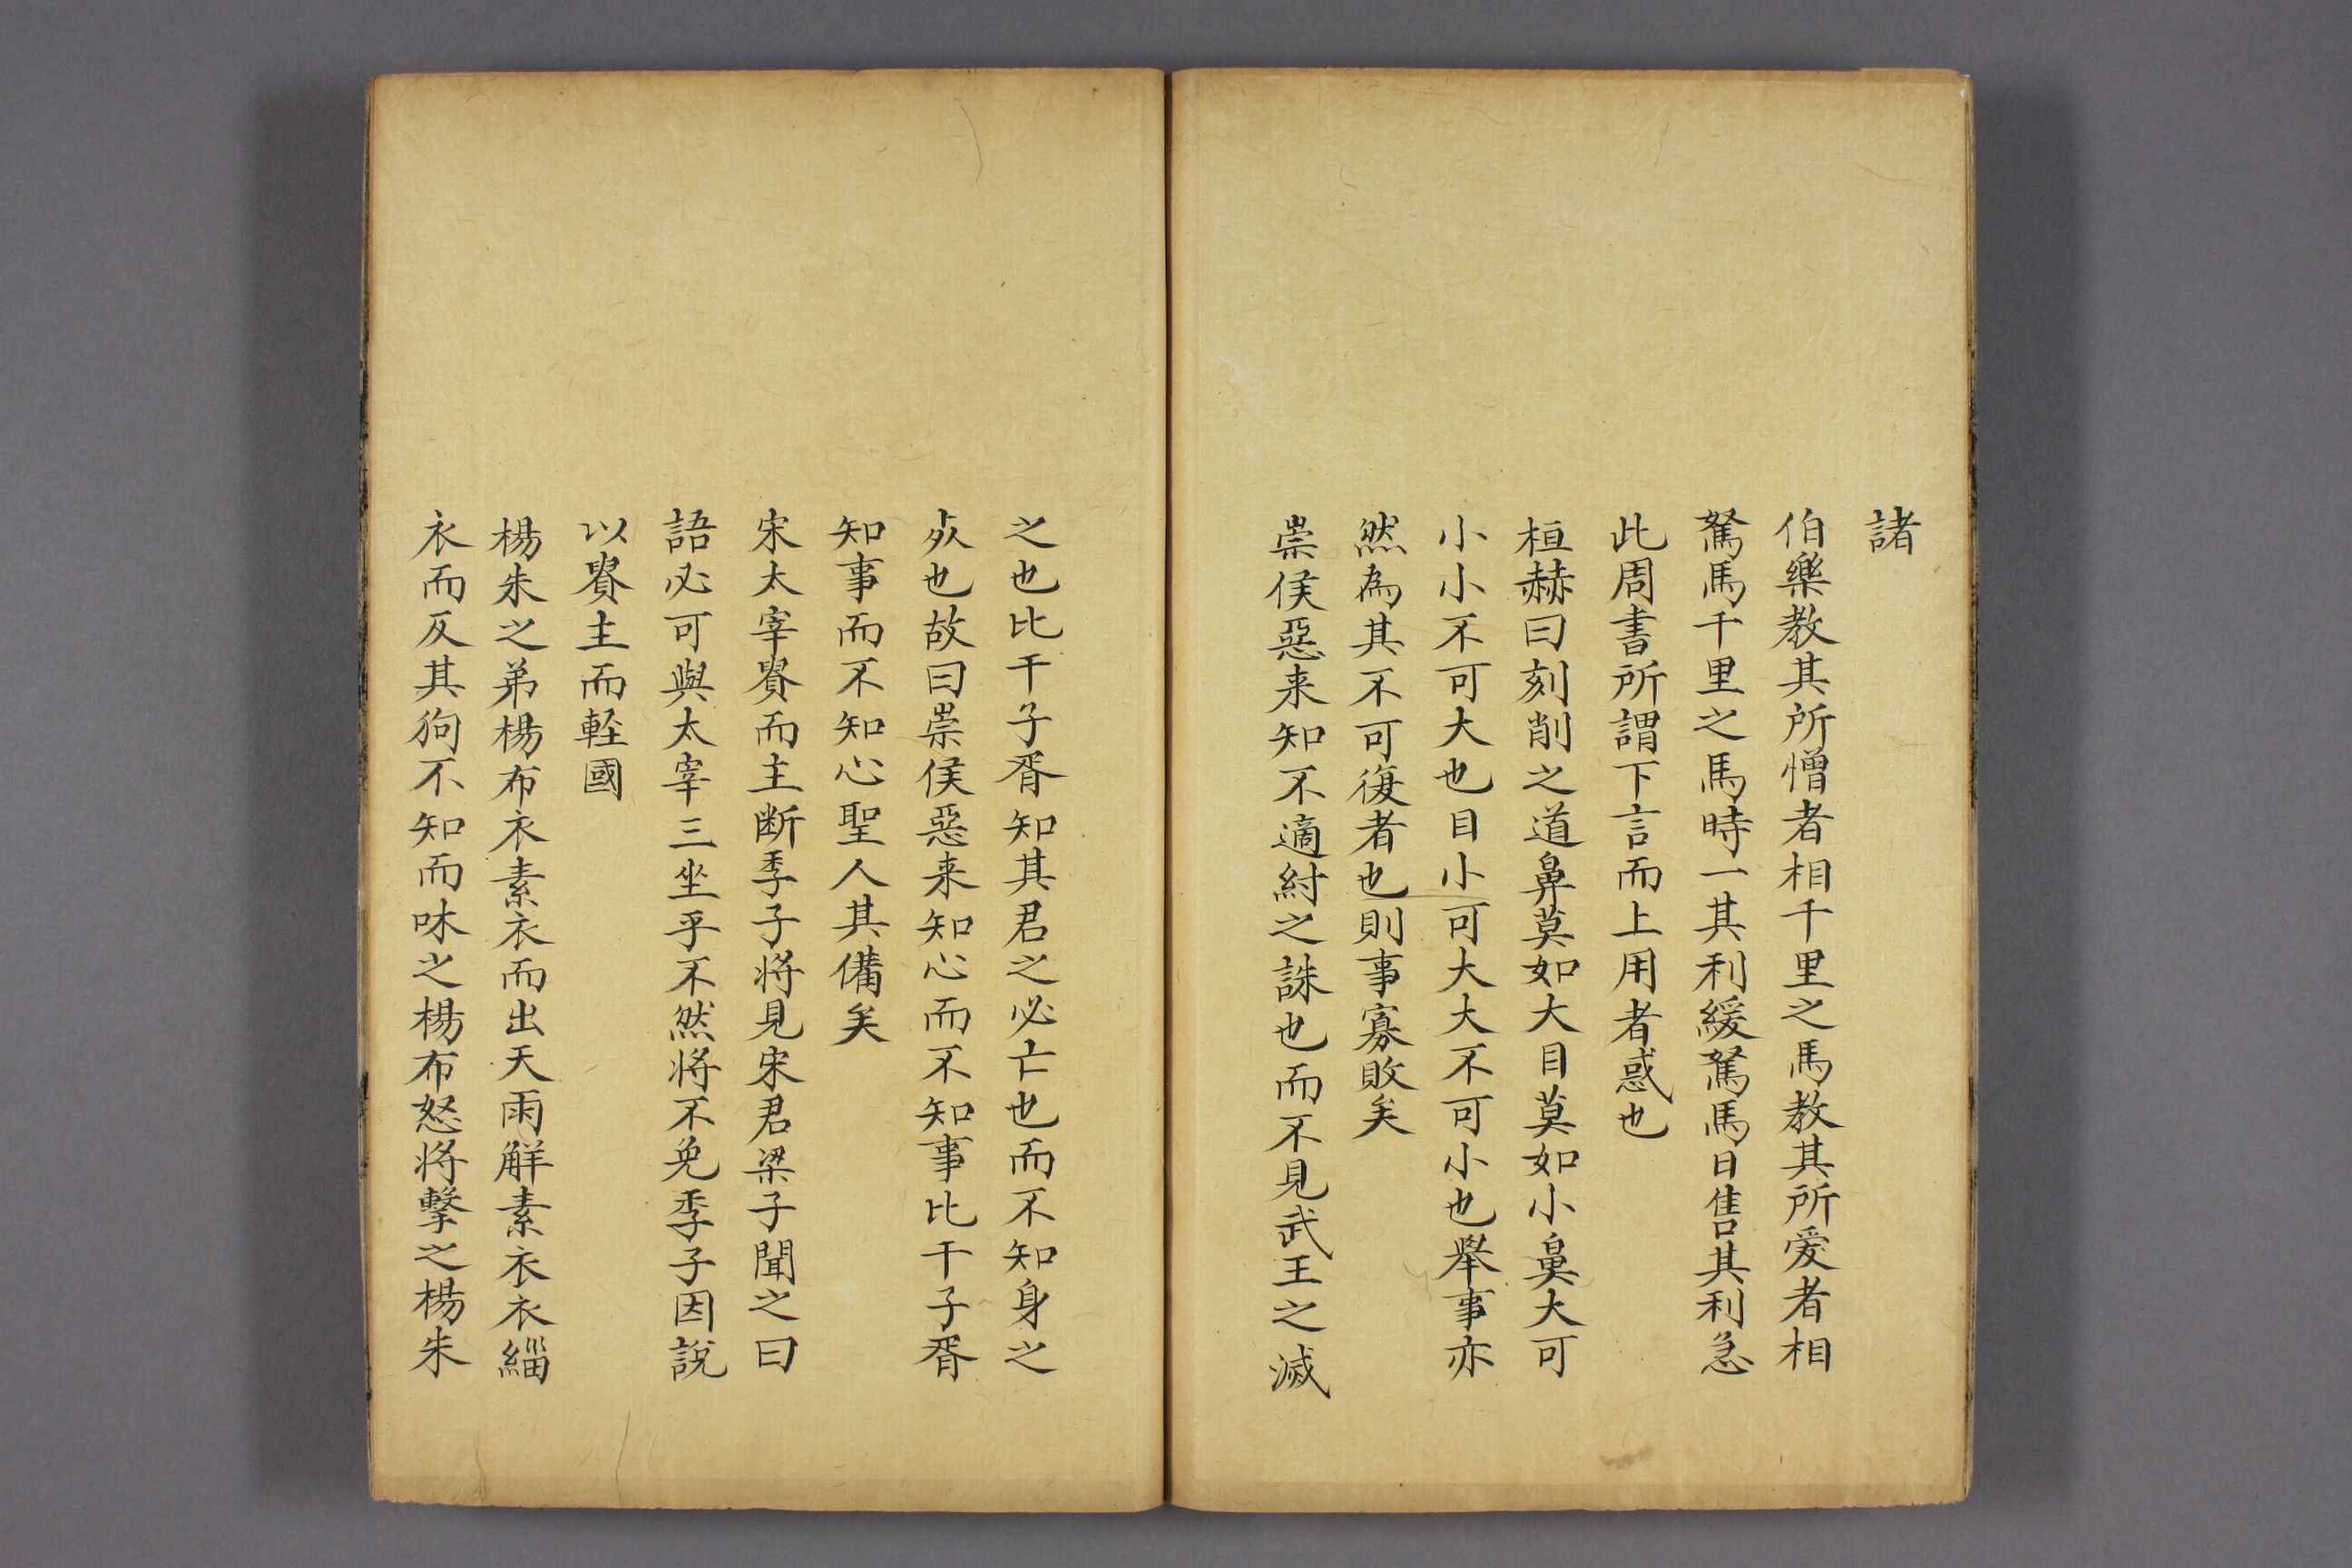 諸
伯樂教其所憎者相千里之馬教其所爱者相
駑馬千里之馬時一其利緩駑馬日售其利急
此周書所謂下言而上用者惑也
桓赫曰刻削之道鼻莫如大目莫如小鼻大可
小小不可大也目小可大大不可小也舉事亦
然為其不可復者也則事寡敗矣
崇侯惡来知不適紂之誅也而不見武王之滅
之也比干子胥知其君之必亡也而不知身之
死也故曰崇侯惡来知心而不知事比干子胥
知事而不知心聖人其備矣
宋太宰貴而主断季子将見宋君梁子聞之曰
語必可與太宰三坐乎不然将不免季子因說
以貴主而輕國
楊朱之弟楊布衣素衣而出天雨解素衣衣緇
衣而反其狗不知而吠之楊布怒将擊之楊朱